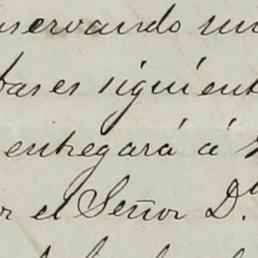 servando un
bases siguient
entregará á
or el Señor D.